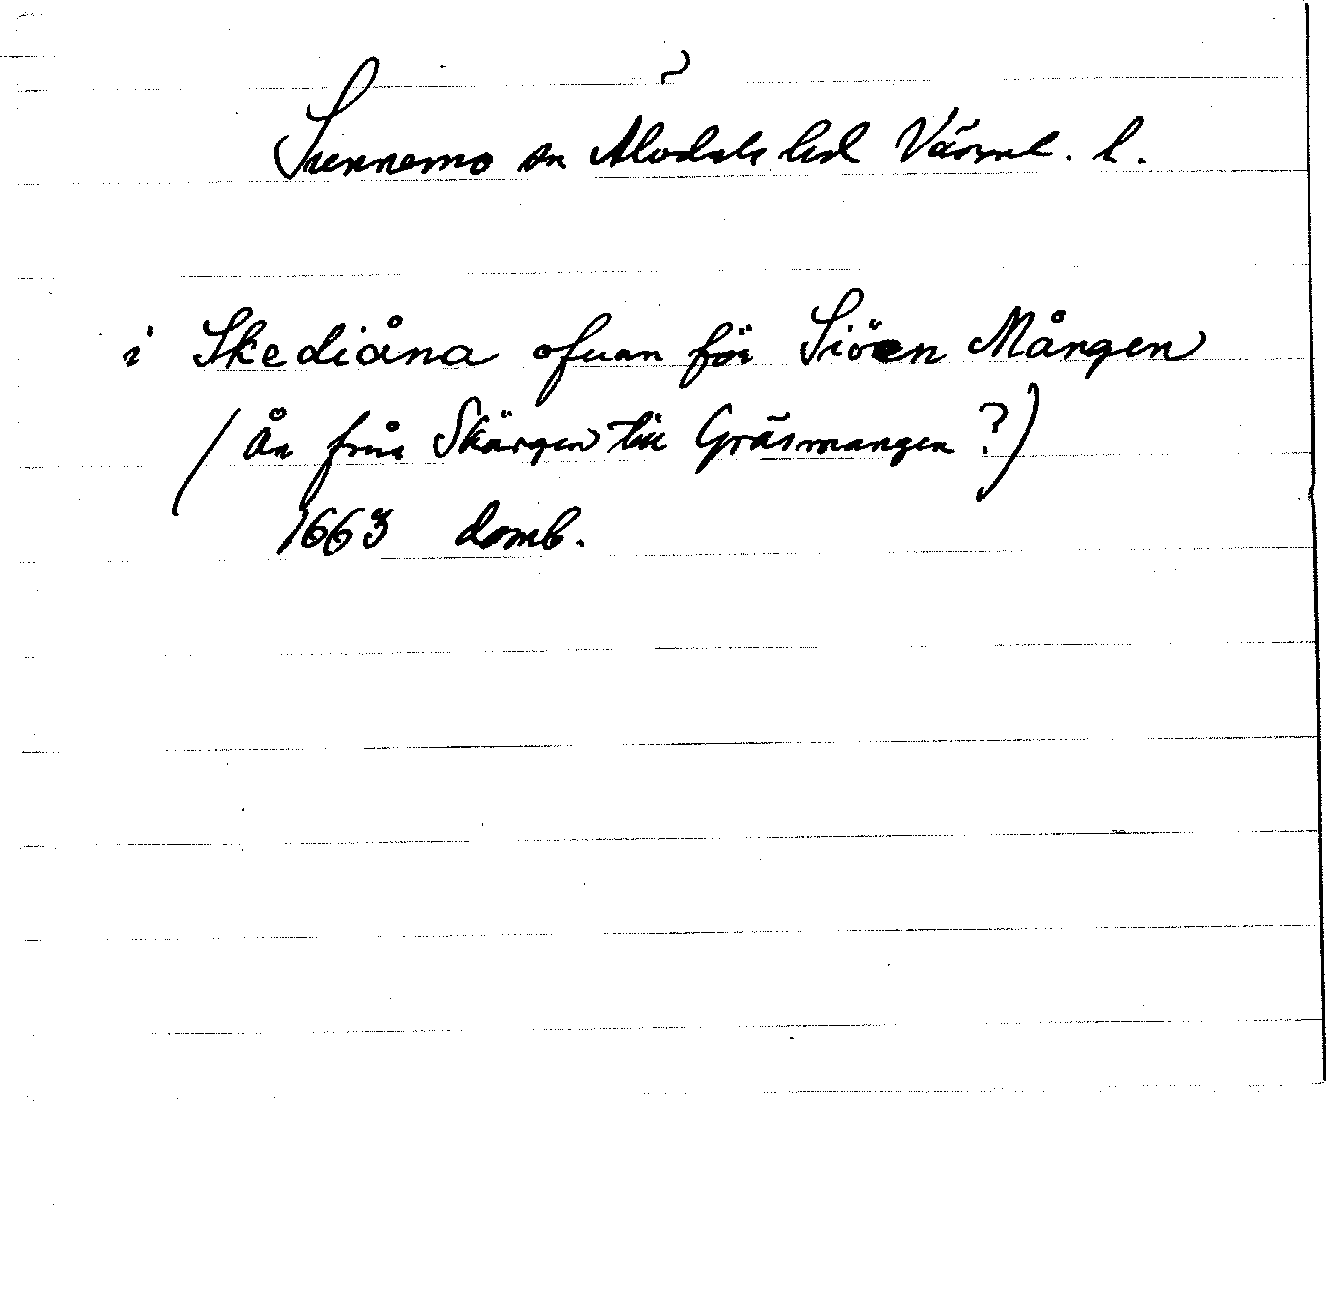 ?
Sunnemo sn Älvdals hd Värml. l.
i Skediåna ofuan för Siöen Mången
(Ån från Skärgen till Gräsmangen?)
1663 domb.